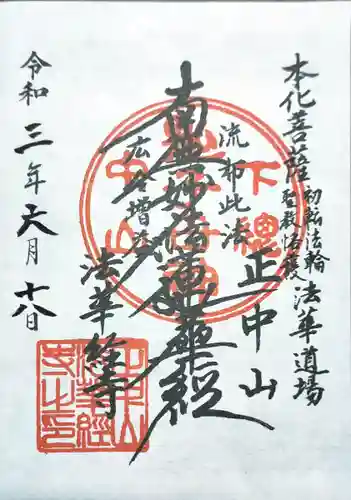 本化菩薩初転法輪
聖教格護法華道場
正中山
流布此法
南無妙法蓮華経
広令増益
法華経寺
令和三年六月十八日